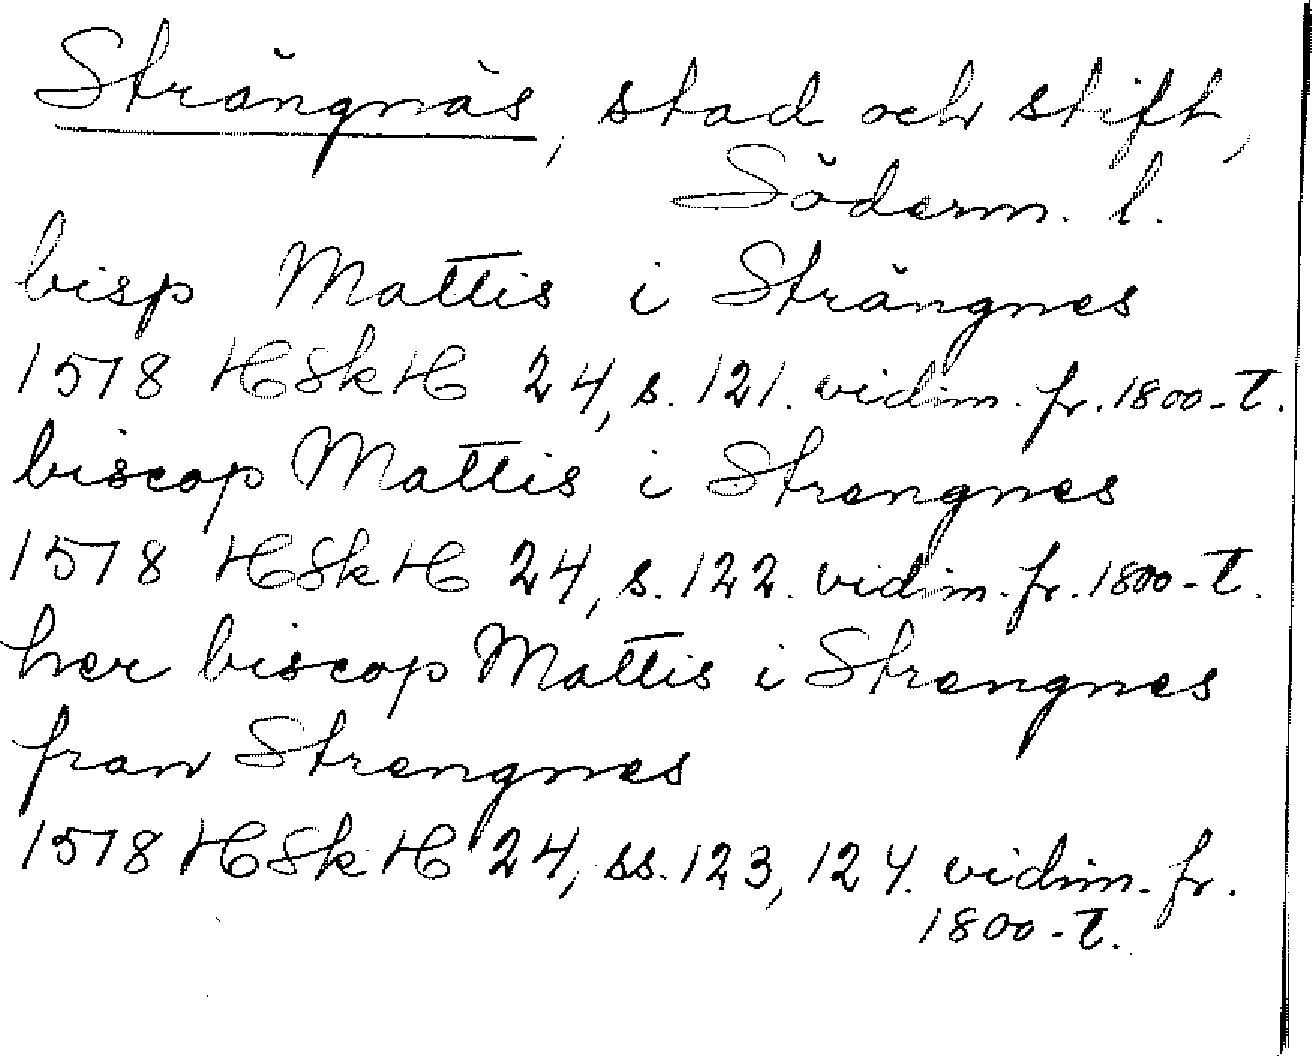 Strängnäs, stad och stift,
Söderm. l.
bisp Mattis i Strängnes
1578 HSkH 24, s. 121. vidim. fr. 1800-t.
biscop Mattis i Strengnes
1578 HSkH 24, s. 122. vidim. fr. 1800-t.
her biscop Mattis i Strengnes
fran Strengnes
1578 HSkH 24, ss. 123, 124. vidim. fr.
1800-t.